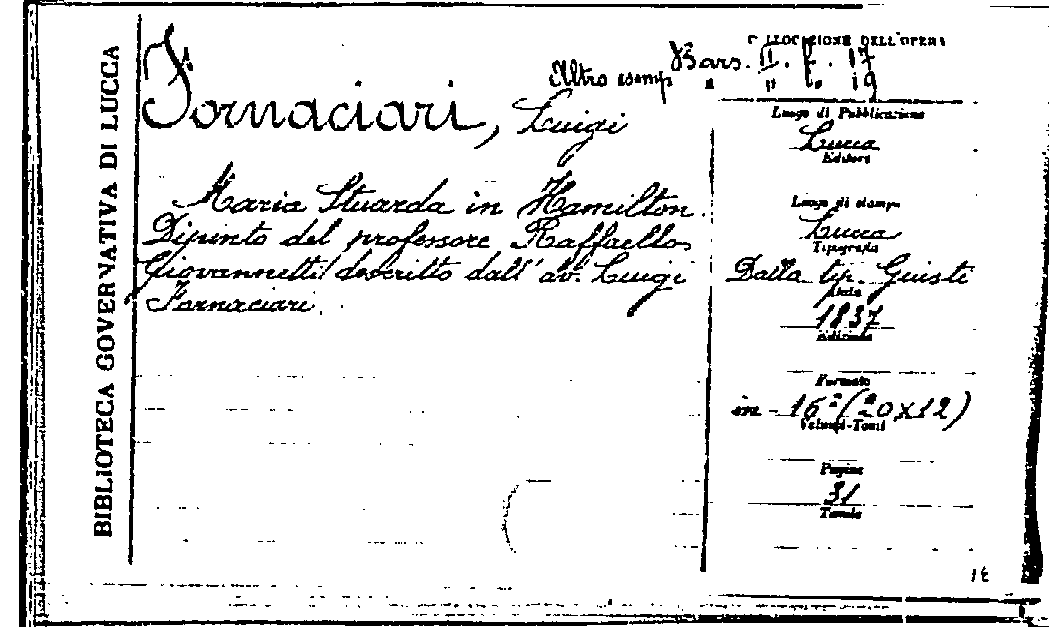 BIBLIOTECA GOVERNATIVA DI LUCCA
COLLOCAZIONE DELL'OPERA
Bars. II. f. 17
Altro esemp " " f. 19
Fornaciari, Luigi
Maria Stuarda in Hamilton
Dipinto del professore Raffaello
Giovannetti descritto dall' av. Luigi
Fornaciari.
Luogo di Pubblicazione
Lucca
Editore
Luogo di stampa
Lucca
Tipografia
Dalla tip. Giusti
Data
1837
Edizione
Formato
in - 16° (20x12)
Volumi-Tomi
Pagine
31
Tavole